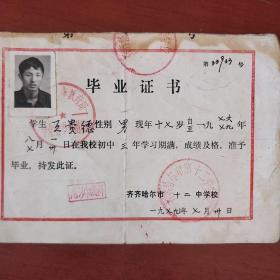 第00923号
毕业证书
学生王贵德性别男现年十七岁自一九七六年
八月 日至一九七九年七月卅日在我校初中三年学习期满，成绩及格，准予
毕业，特发此证。
齐齐哈尔市十二中学校
一九七九年七月卅日